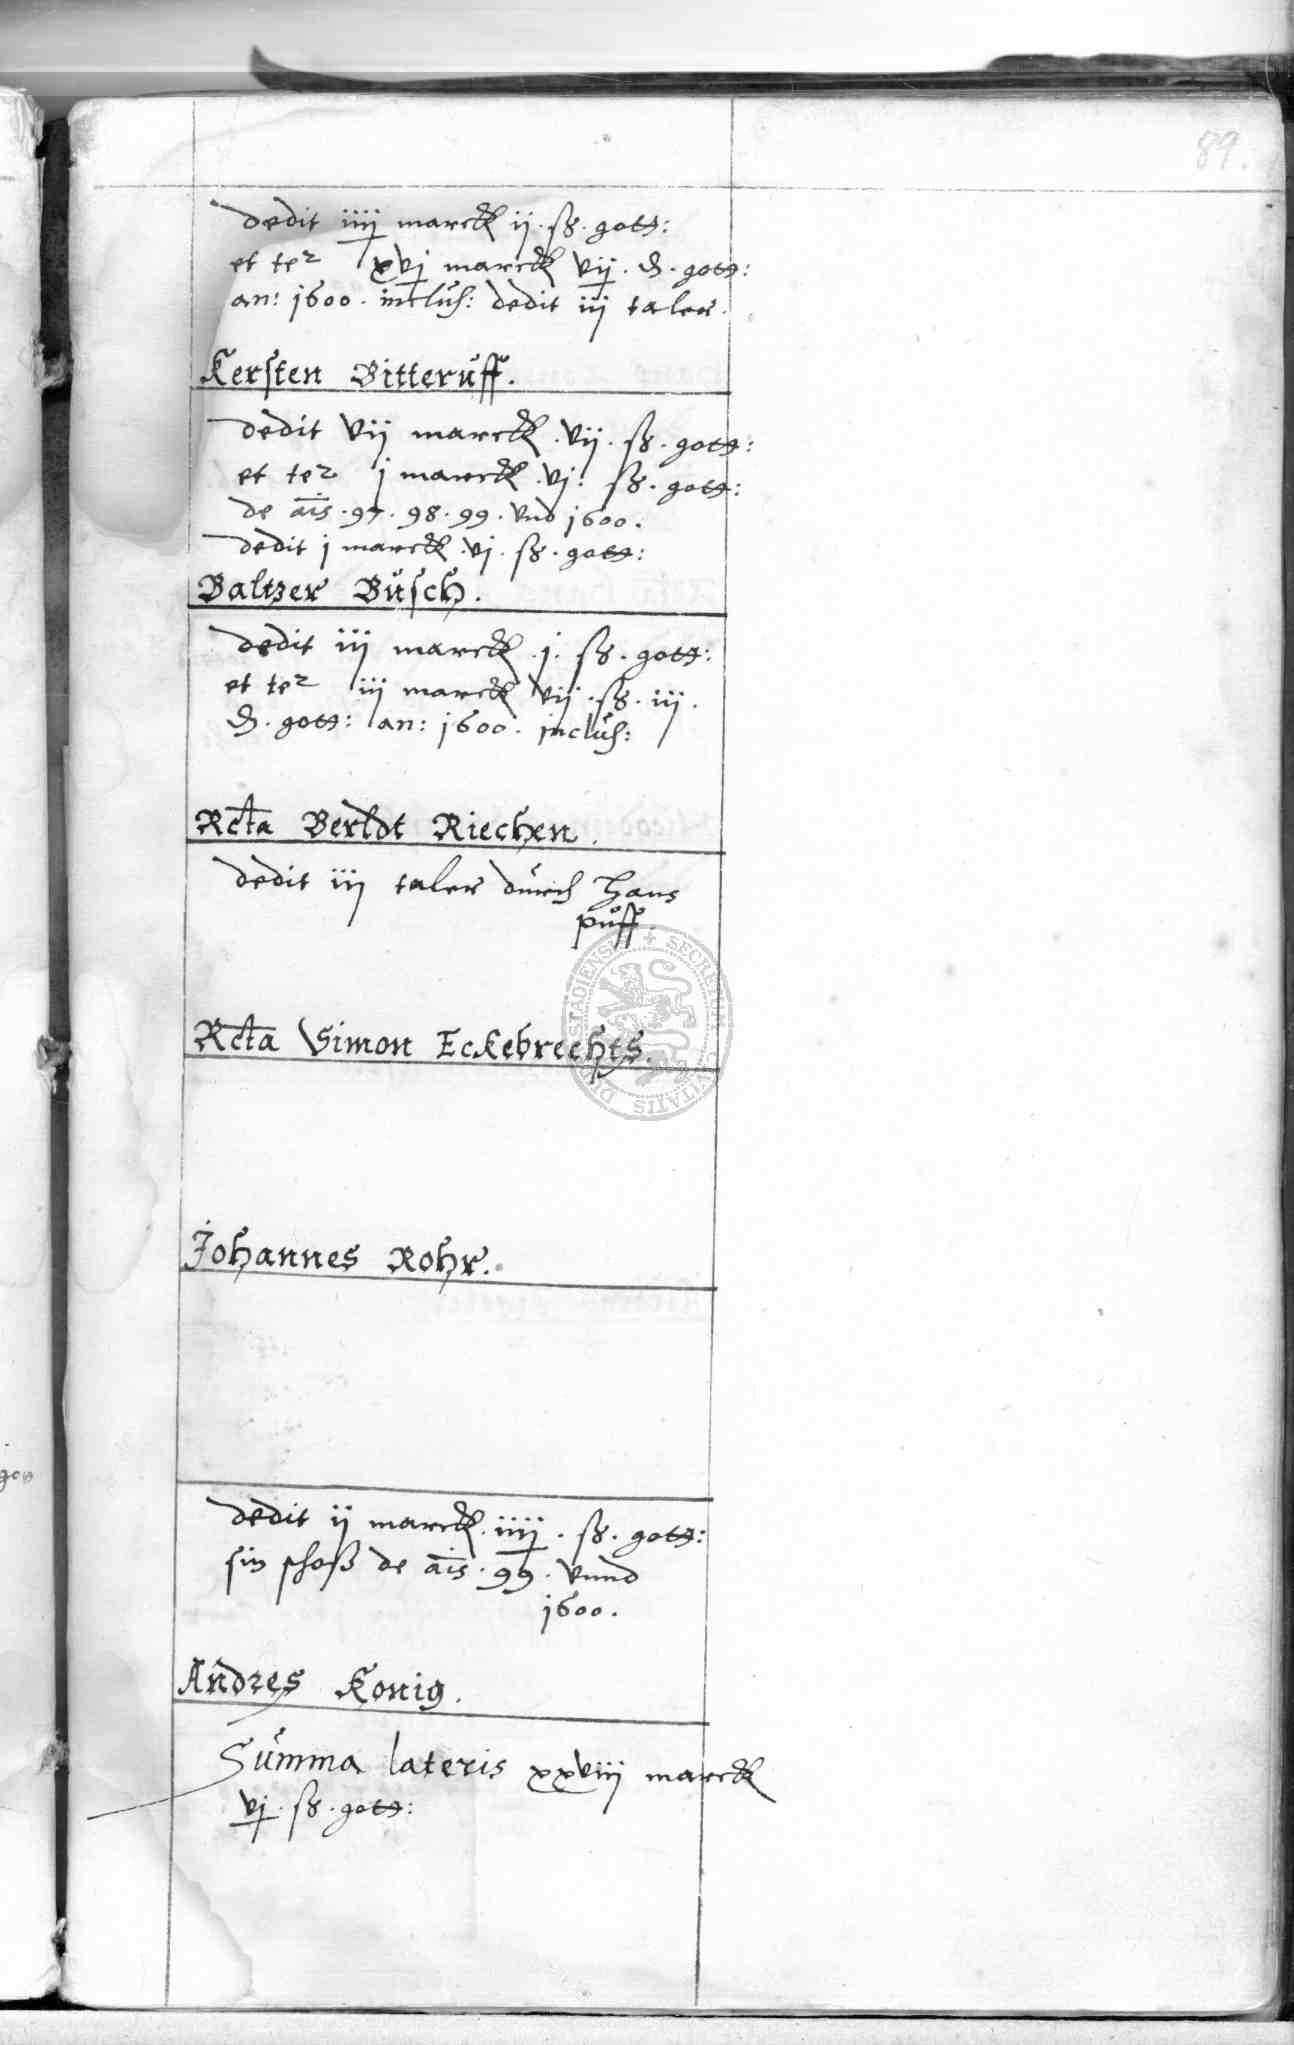 89.
dedit iiij marck ij · ß · gott:
et ter xvj marck vij · ₰ · gott:
an: 1600 · inclus: dedit iij taler.
Kersten Bitteruff.
dedit vij marck · vij · ß · gott:
et ter j marck · vj · ß · gott:
de ais · 97 · 98 · 99 · vnd 1600.
dedit j marck · vj · ß · gott:
Baltzer Busch.
dedit iij marck · j · ß · gott:
et ter iij marck vij · ß · iij ·
₰ · gott: an: 1600 · inclus:
Rcta Berldt Riechen.
dedit iij taler durch Hans
puff.
Rcta Simon Eckebrechts.
Johannes Rohr.
dedit ij marck · iiij · ß · gott:
sin schoß de ais · 99 · vnnd
1600.
Andres Konig.
Summa lateris xxviij marck
vj · ß · gott:
SECRETUM CIVITATIS